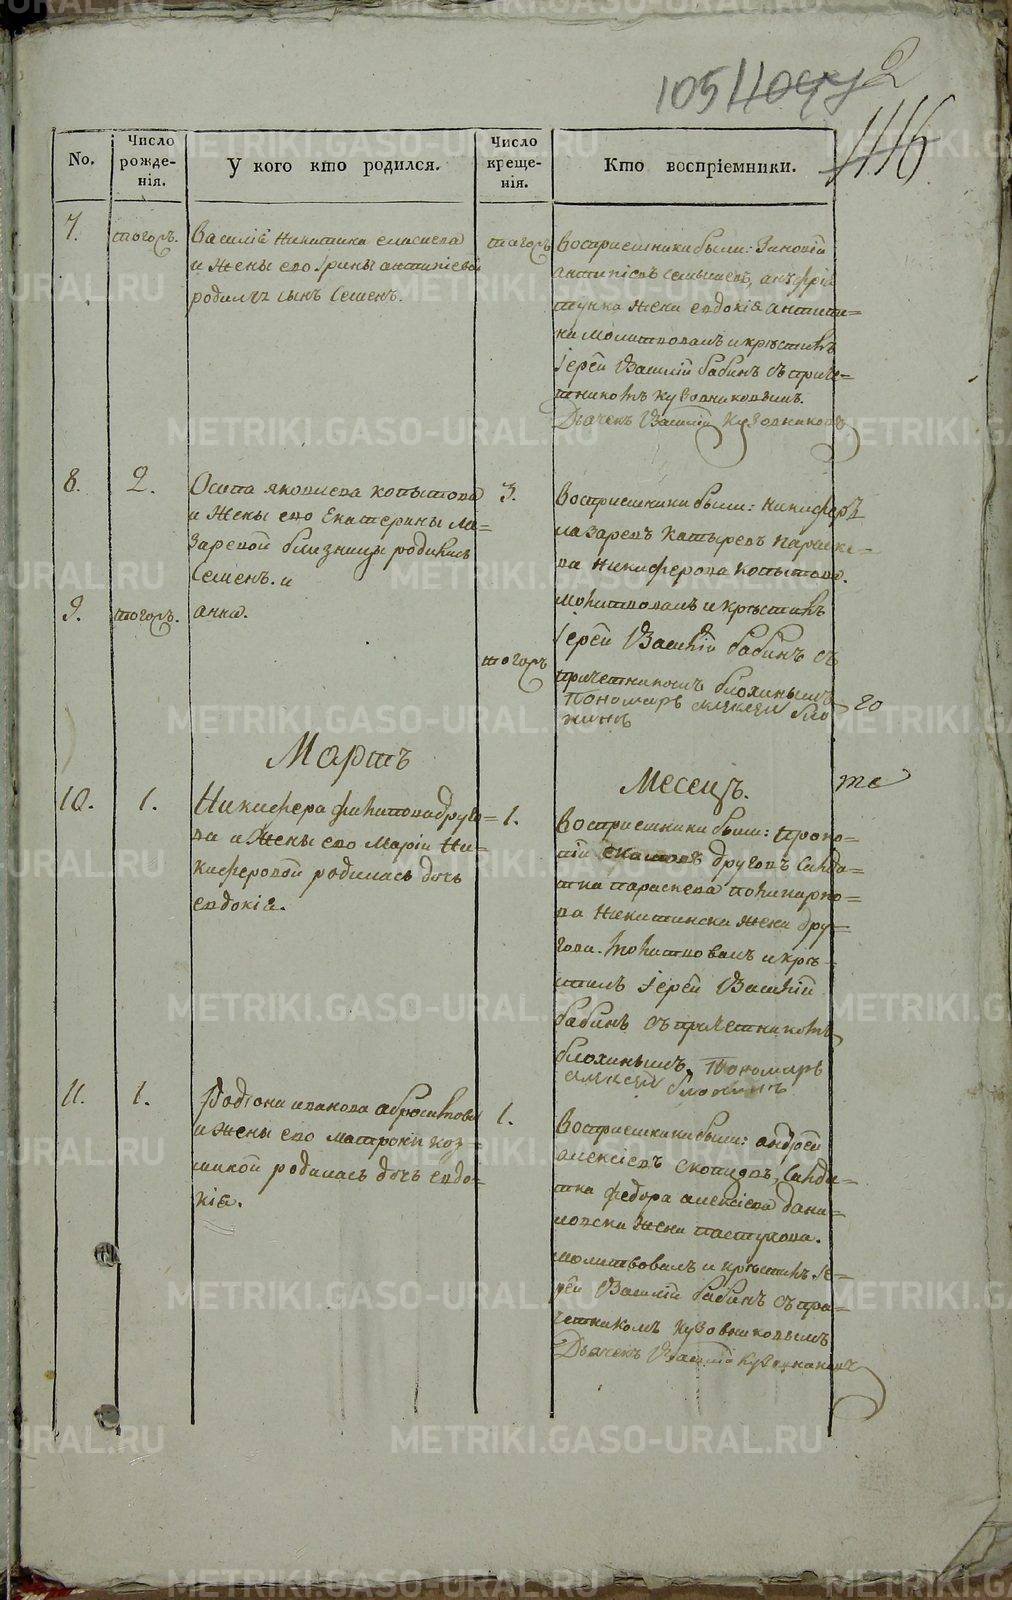 105
2
116
No.
Число рожде-нія.
У кого кто родился.
Число креще-нія.
Кто воспріемники.
7.
тогожъ.
Василія Никитина
и жены его Ірины антипіевой
родился сынъ Семенъ.
тогожъ
Восприемники были: Зиновій
антипіевъ
жена евдокія антипи=
на молитвовалъ и крестилъ
Іерей Василій бабинъ съ приче=
тникомъ Кузовниковымъ.
Дьячекъ Василій Кузовниковъ
8.
2.
Осипа яковлева копытова
и жены его Екатерины ла=
заревой близницы родились
Семенъ. и
3.
Восприемники были: никифоръ
лазаревъ Катыревъ параске=
ва никиферова копытова.
9.
тогожъ.
анна.
тогожъ
молитвовалъ и крестилъ
Іерей Василій бабинъ съ
причетникомъ блохинымъ
Пономарь алексей бло
хинъ
20
Мартъ
Месецъ.
те
10.
1.
Никифера филипова друго=
ва и жены его Маріи Ни=
киферовой родилась дочь
евдокіа.
1.
Восприемники были: проко=
пій другов солда=
тка параскева поликарпо=
ва Никитинска жена дру=
гова. молитвовалъ и кре=
стилъ Іерей Василій
бабинъ съ причетникомъ
блохинымъ. Пономарь
алексей блохинъ
11.
1.
Родіона иванова абросимова
и жены его матроны коз=
миной родилась дочь евдо=
кіа.
1.
Восприемники были: андрей
алексіевъ скопидовъ, солда=
тка федора алексіева дани=
ловска жена пастухова.
молитвовалъ и крестилъ Іе=
рей Василій бабинъ съ при=
четникомъ Кузовниковымъ
Дьячекъ Василій Кузовниковъ
METRIKI.GASO-URAL.RU